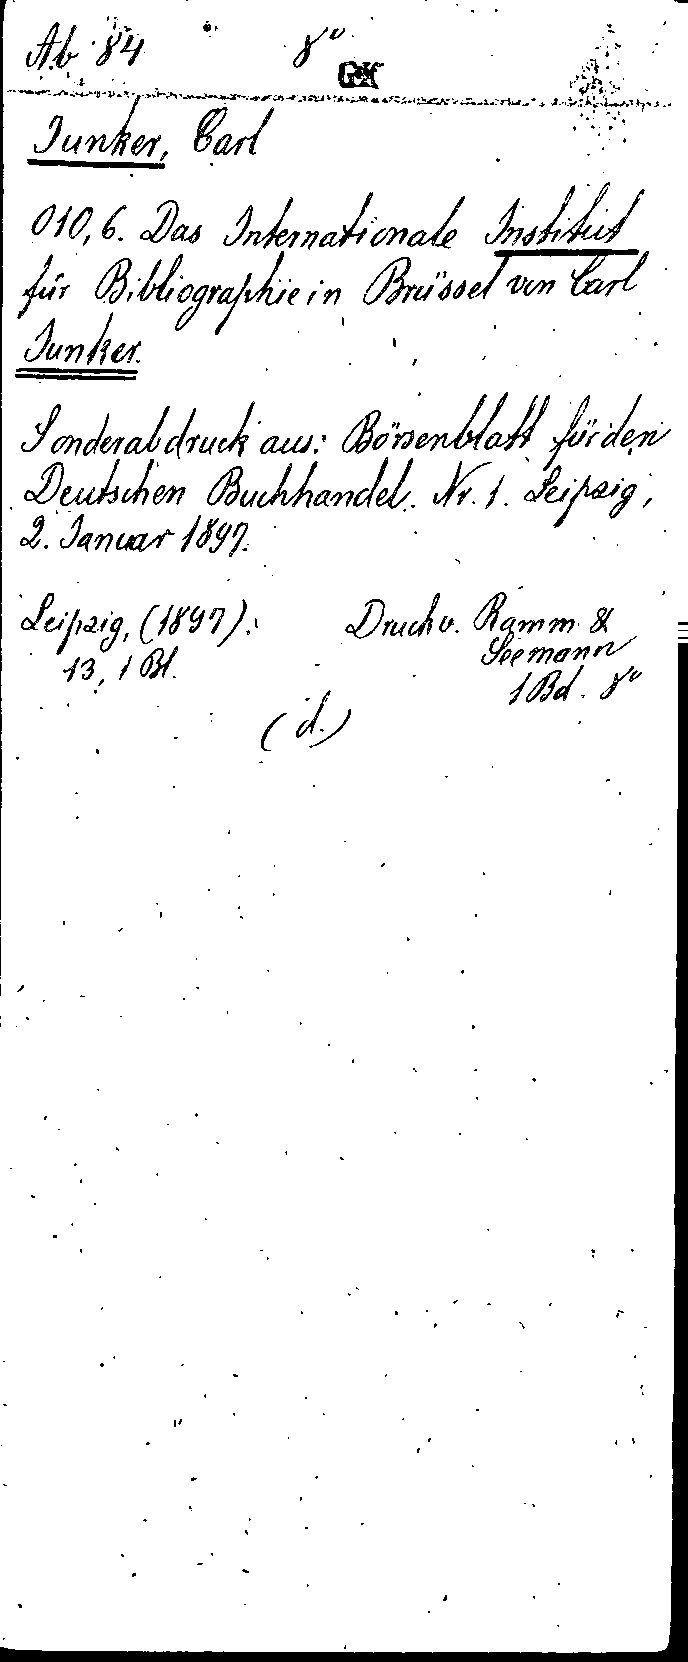 Ab 84 8°
GK
Junker, Carl
010,6. Das Internationale Institut
für Bibliographie in Brüssel von Carl
Junker.
Sonderabdruck aus: Börsenblatt für den
Deutschen Buchhandel. Nr. 1. Leipzig,
2. Januar 1897.
Leipzig, (1897). Druck v. Ramm &
Seemann
13, 1 Bl. 1 Bd. 8°
(d.)